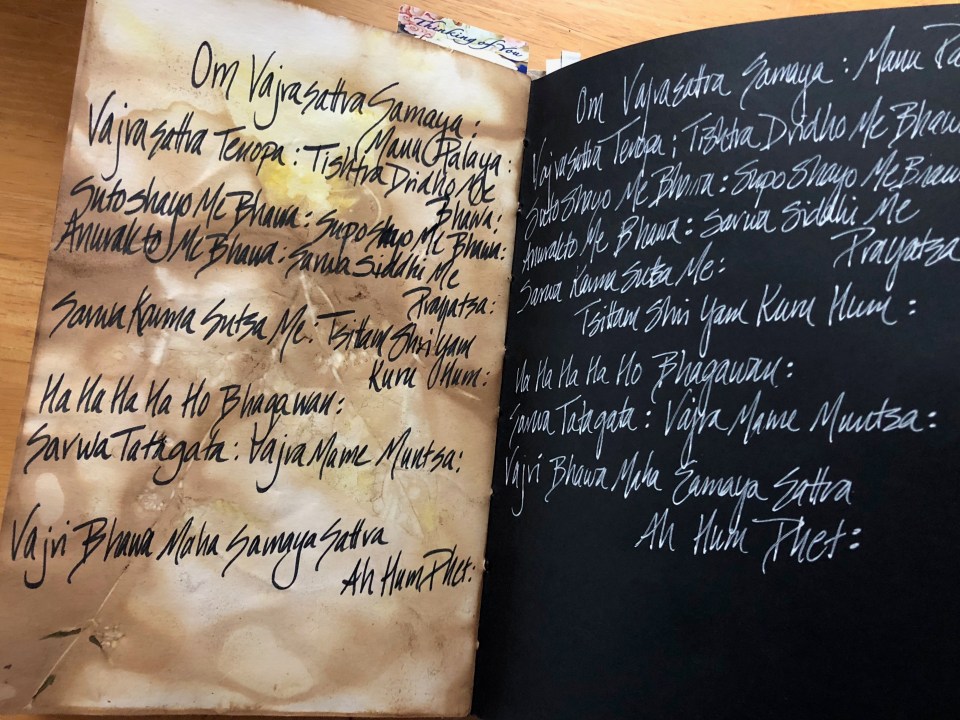 Thinking of You
Om Vajrasattva Samaya:
Manu Palaya:
Vajrasattva Tenopa: Tishtra Dridho Me
Bhawa:
Sutoshayo Me Bhawa: Suposhayo Me Bhawa:
Anurakto Me Bhawa: Sarwa Siddhi Me
Prayatsa:
Sarwa Karma Sutsa Me: Tsittam Shri Yam
Kuru Hum:
Ha Ha Ha Ha Ho Bhagawan:
Sarwa Tatagata: Vajra Mame Muntsa:
Vajri Bhawa Maha Samaya Sattva
Ah Hum Phet:
Om Vajrasattva Samaya: Manu Pa
Vajrasattva Tenopa: Tishtra Dridho Me Bhaw
Suto Shayo Me Bhawa: Supo Shayo Me Bhaw
Anurakto Me Bhawa: Sarwa Siddhi Me
Prayatsa
Sarwa Karma Sutsa Me:
Tsittam Shri Yam Kuru Hum:
Ha Ha Ha Ha Ho Bhagawan:
Sarwa Tatagata: Vajra Mame Muntsa:
Vajri Bhawa Maha Samaya Sattva
Ah Hum Phet: